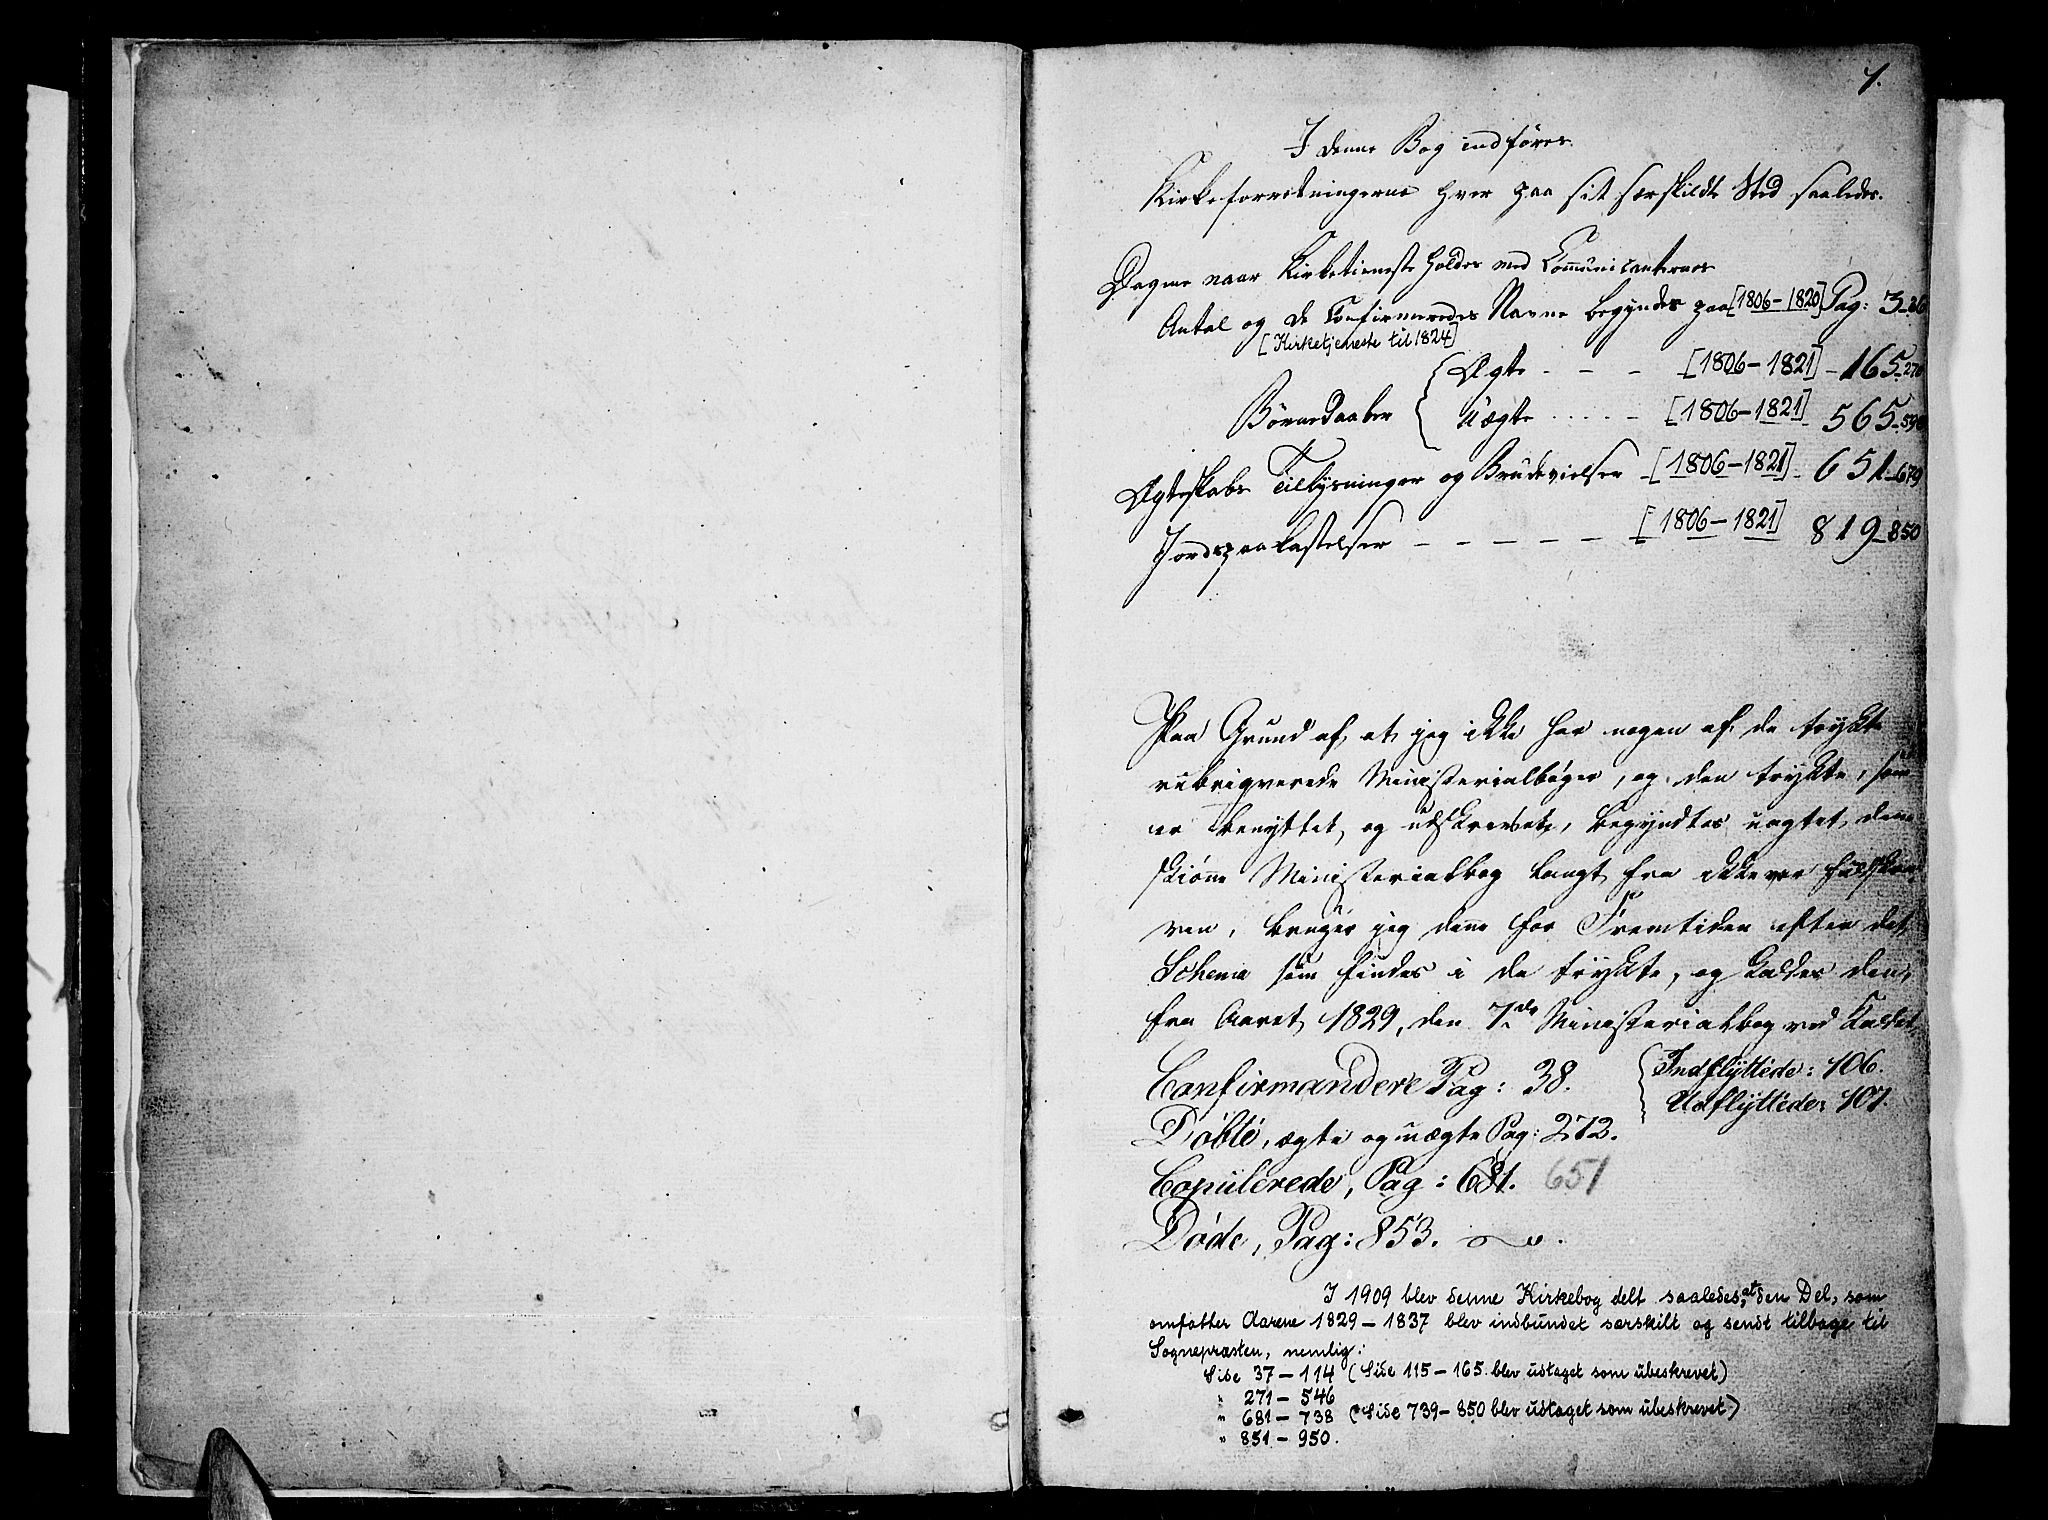 1.
I denne Bog indføres
Kirkeforretningerne hver paa sit særskildte Sted saaledes.
Dagene naar Kirketieneste holdes med Communicanternes
Antal og de Confirmeredes Navne begyndes paa [1806-1820] Pag: 3-36
[Kirketjeneste til 1824]
Ægte - - - [1806-1821] - 165-270
Børnedaaber
Uægte ..... - [1806-1821] 565-590
Ægteskabs Tillysninger og Brudevielser - [1806-1821] - 651-679
Jordspaakastelser - - - - - [1806-1821] 819-850
Paa Grund af, at jeg ikke har nogen af de trykte
rubriqverede Ministerialbøger, og den trykte, som
er benyttet, og udskrevet, begyndtes uagtet denne
skiønne Ministerialbog langt fra ikke var fuldskre-
ven, bruger jeg denne for Fremtiden efter det
Schema som findes i de trykte, og kaldes den,
fra Aaret 1829, den 7de Ministerialbog ved Kaldet
Confirmandere Pag: 38.
Indflyttede: 106.
Udflyttede: 107.
Døbte, ægte og uægte Pag: 272.
Copulerede, Pag: 681. 651
Døde, Pag: 853.
I 1909 blev denne Kirkebog delt saaledes, at den Del, som
omfatter Aarene 1829-1837 blev indbundet særskilt og sendt tilbage til
Sognepræsten, nemlig:
Side 37-114 (Side 115-165 blev udtaget som ubeskrevet)
" 271-546
" 681-738 (Side 739-850 blev udtaget som ubeskrevet)
" 851-950.